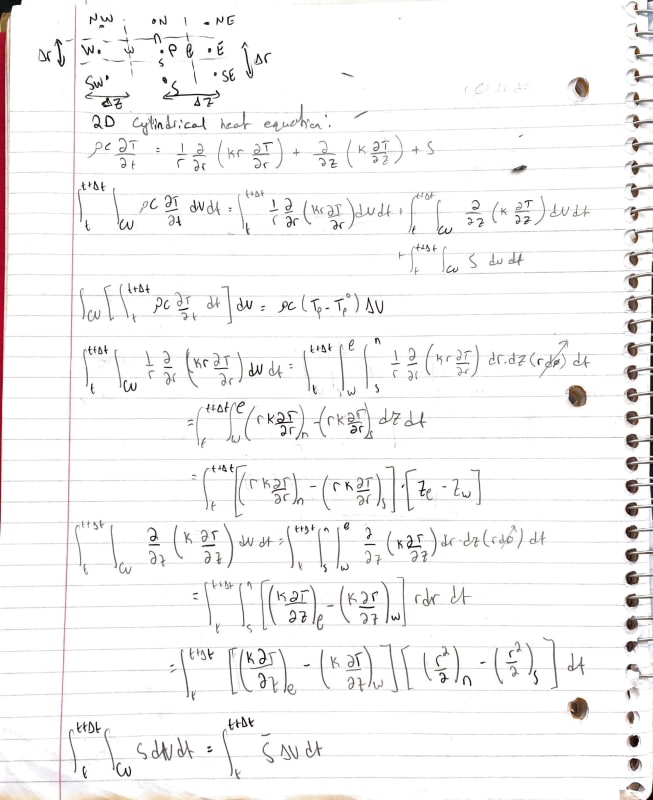 NW •N • NE
n
Δr W. w •P e •E Δr
s
SW• •S •SE
ΔZ ΔZ
2D Cylindrical heat equation:
ρC ∂T/∂t = 1/r ∂/∂r (kr ∂T/∂r) + ∂/∂z (K ∂T/∂z) + S
∫_t^{t+Δt} ∫_CV ρC ∂T/∂t dV dt = ∫_t^{t+Δt} 1/r ∂/∂r (Kr ∂T/∂r) dV dt + ∫_t^{t+Δt} ∫_CV ∂/∂z (K ∂T/∂z) dV dt
+ ∫_t^{t+Δt} ∫_CV S dV dt
∫_CV [∫_t^{t+Δt} ρC ∂T/∂t dt] dV = ρC (T_P - T_P^0) ΔV
∫_t^{t+Δt} ∫_CV 1/r ∂/∂r (Kr ∂T/∂r) dV dt = ∫_t^{t+Δt} ∫_w^e ∫_s^n 1/r ∂/∂r (Kr ∂T/∂r) dr.dz (r dφ) dt
= ∫_t^{t+Δt} ∫_w^e (rK ∂T/∂r)_n - (rK ∂T/∂r)_s dz dt
= ∫_t^{t+Δt} [(rK ∂T/∂r)_n - (rK ∂T/∂r)_s] · [Z_e - Z_w]
∫_t^{t+Δt} ∫_CV ∂/∂z (K ∂T/∂z) dV dt = ∫_t^{t+Δt} ∫_s^n ∫_w^e ∂/∂z (K ∂T/∂z) dr·dz (r dφ) dt
= ∫_t^{t+Δt} ∫_s^n [(K ∂T/∂z)_e - (K ∂T/∂z)_w] r dr dt
= ∫_t^{t+Δt} [(K ∂T/∂z)_e - (K ∂T/∂z)_w] [(r²/2)_n - (r²/2)_s] dt
∫_t^{t+Δt} ∫_CV S dV dt = ∫_t^{t+Δt} S̄ ΔV dt